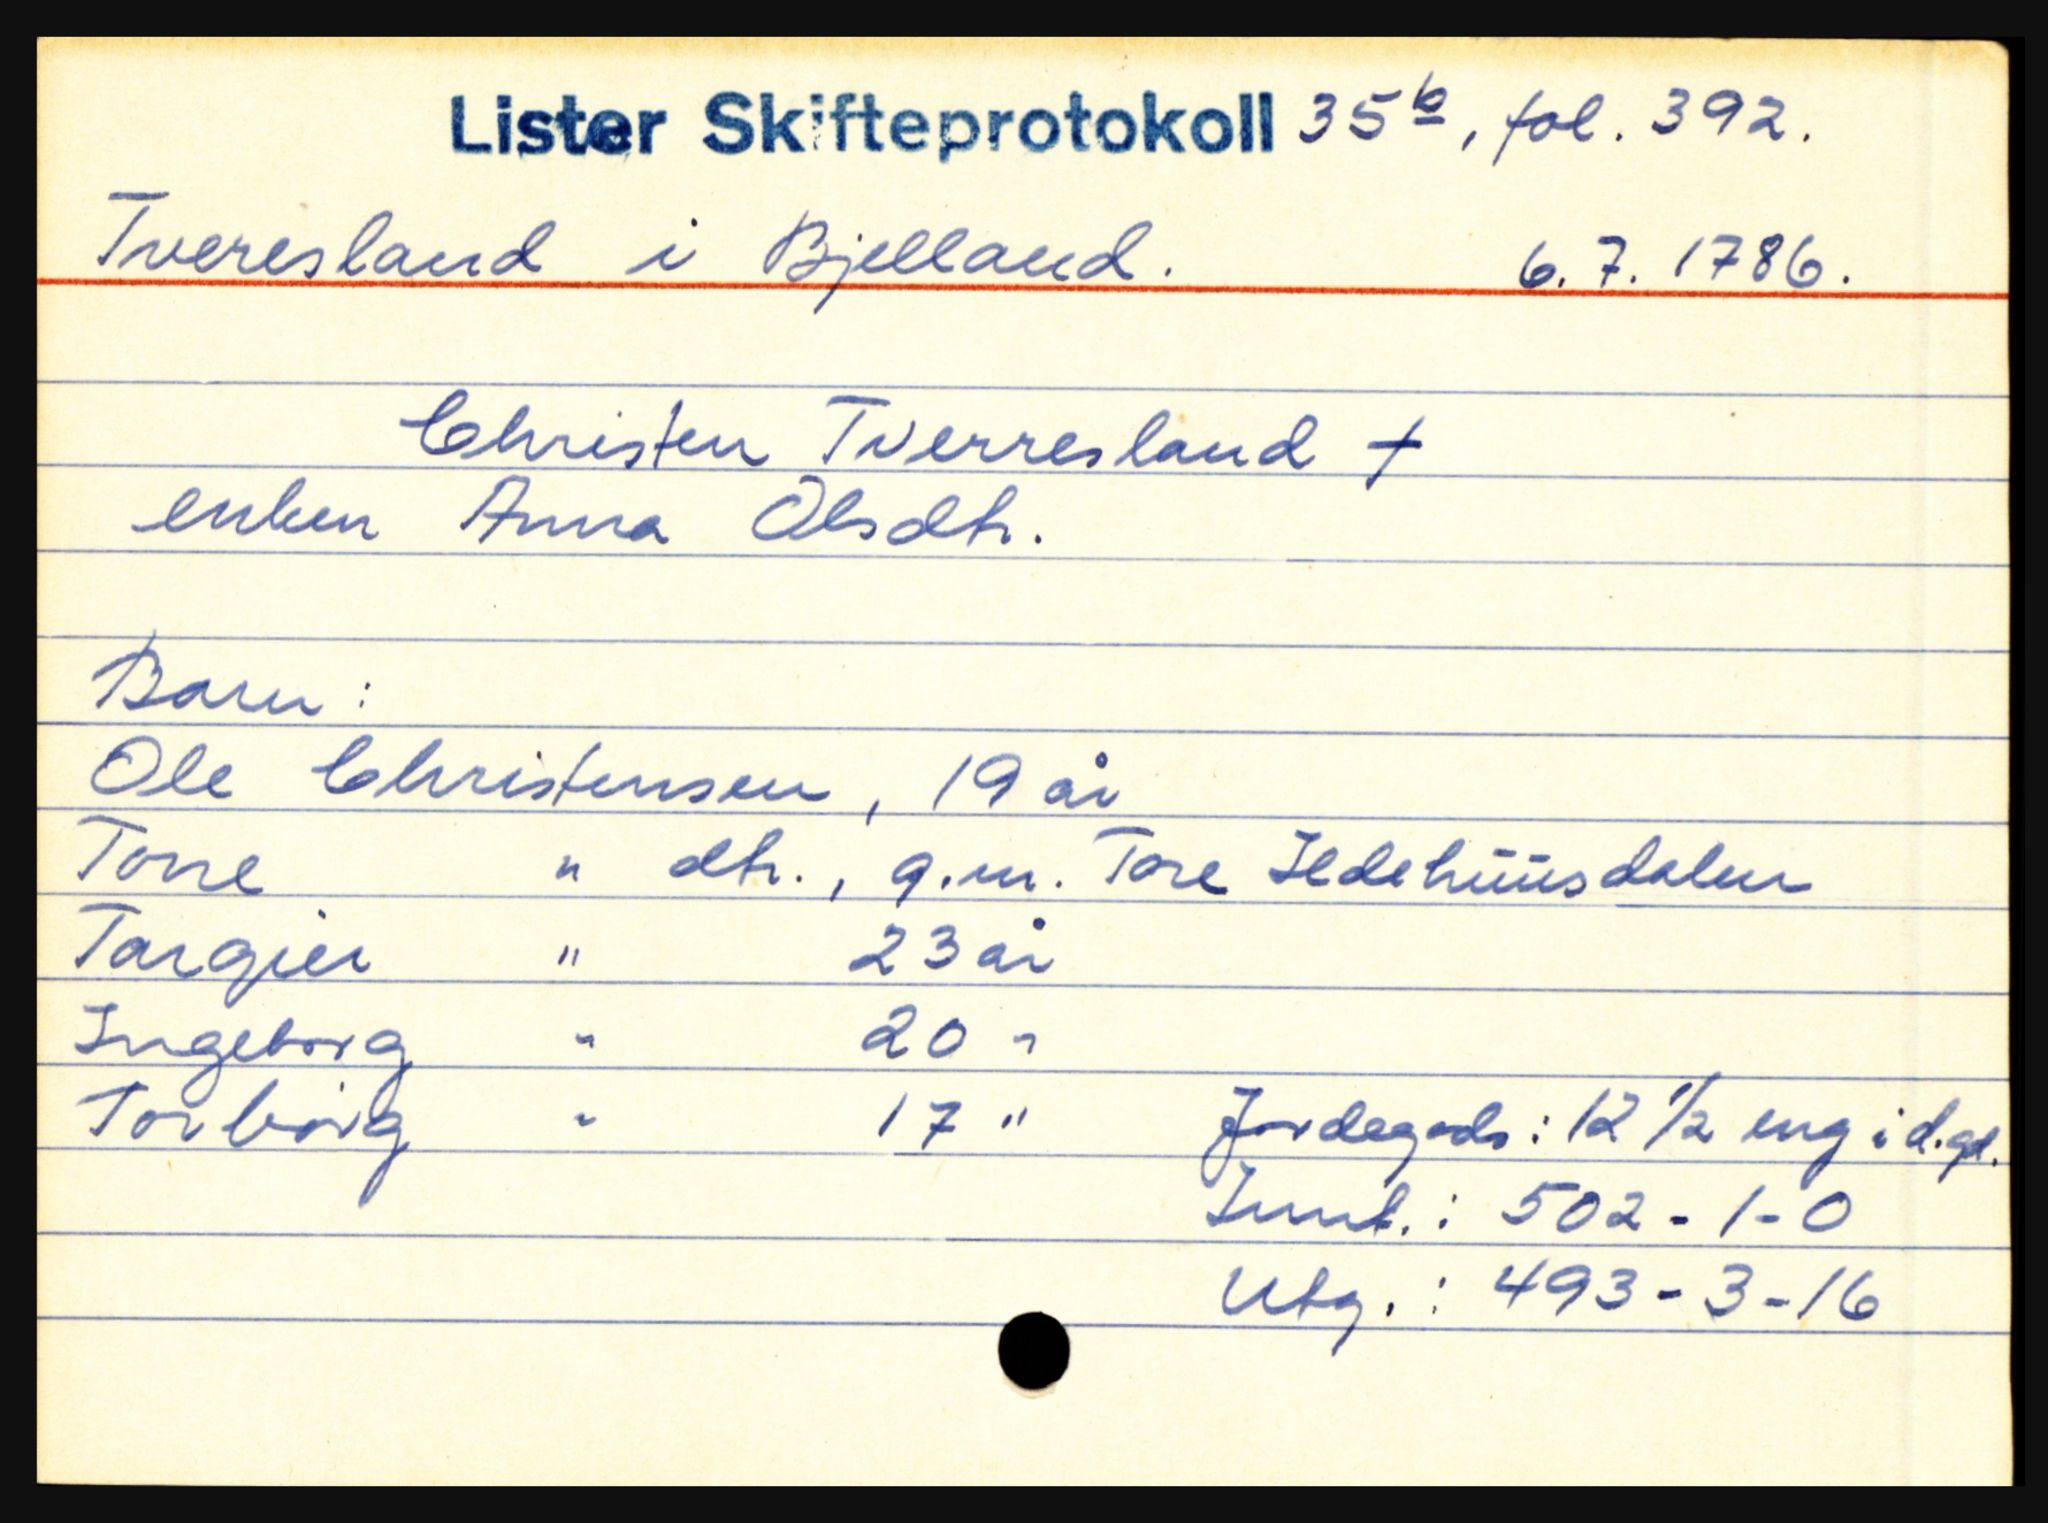 Lister Skifteprotokoll 35b, fol. 392.
Tveresland i Bjelland. 6.7.1786.
Christen Tverresland †
enken Anna Olsdtr.
Barn:
Ole Christensen, 19 år
Tone " dtr., g.m. Tore Ildehüüsdalen
Targier " 23 år
Ingeborg " 20 "
Torborg " 17 " Jordegods: 12 1/2 eng i d.gd.
Innt.: 502-1-0
Utg.: 493-3-16